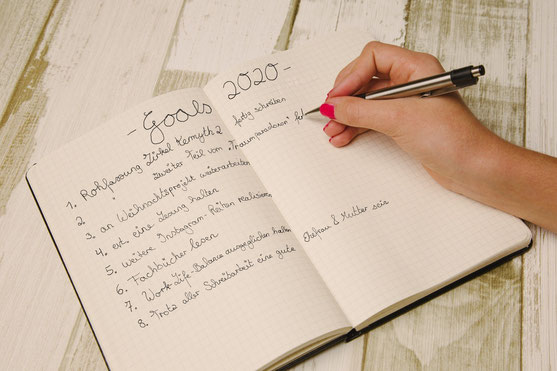 - Goals 2020 -
1. Rohfassung Zirkel Kermyth 2 fertig schreiben
2. " zweiter Teil vom "Traumparadoxon" fert
3. an Weihnachtsprojekt weiterarbeiten
4. evt. eine Lesung halten
5. weitere Instagram-Reihen realisieren
6. Fachbücher lesen
7. Work-Life-Balance ausgeglichen halten
8. Trotz aller Schreibarbeit eine gute Ehefrau & Mutter sein